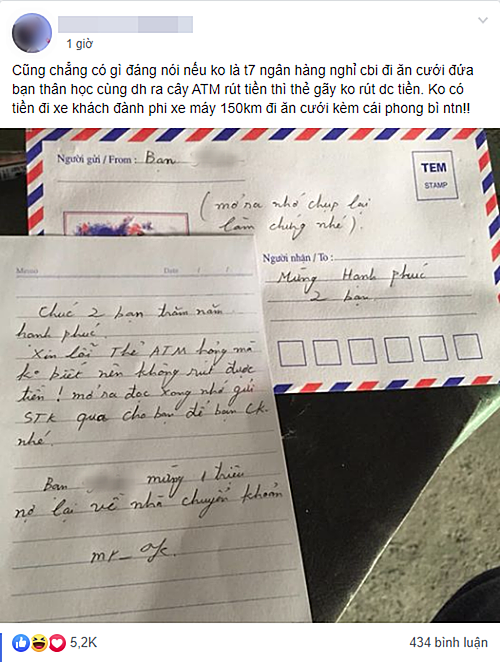 1 giờ
Cũng chẳng có gì đáng nói nếu ko là t7 ngân hàng nghỉ cbi đi ăn cưới đứa
bạn thân học cùng dh ra cây ATM rút tiền thì thẻ gãy ko rút dc tiền. Ko có
tiền đi xe khách đành phi xe máy 150km đi ăn cưới kèm cái phong bì ntn!!
Người gửi / From : Bạn
TEM
STAMP
(mở ra nhớ chụp lại
làm chứng nhé).
Người nhận / To :
Mừng Hạnh phúc
2 bạn.
Memo Date / /
Chúc 2 bạn trăm năm
hạnh phúc.
Xin lỗi Thẻ ATM hỏng mà
k biết nên không rút được
tiền! mở ra đọc xong nhớ gửi
STK qua cho bạn để bạn CK
nhé.
Bạn mừng 1 triệu
nợ lại về nhà chuyển khoản
mr_
5,2K
434 bình luận